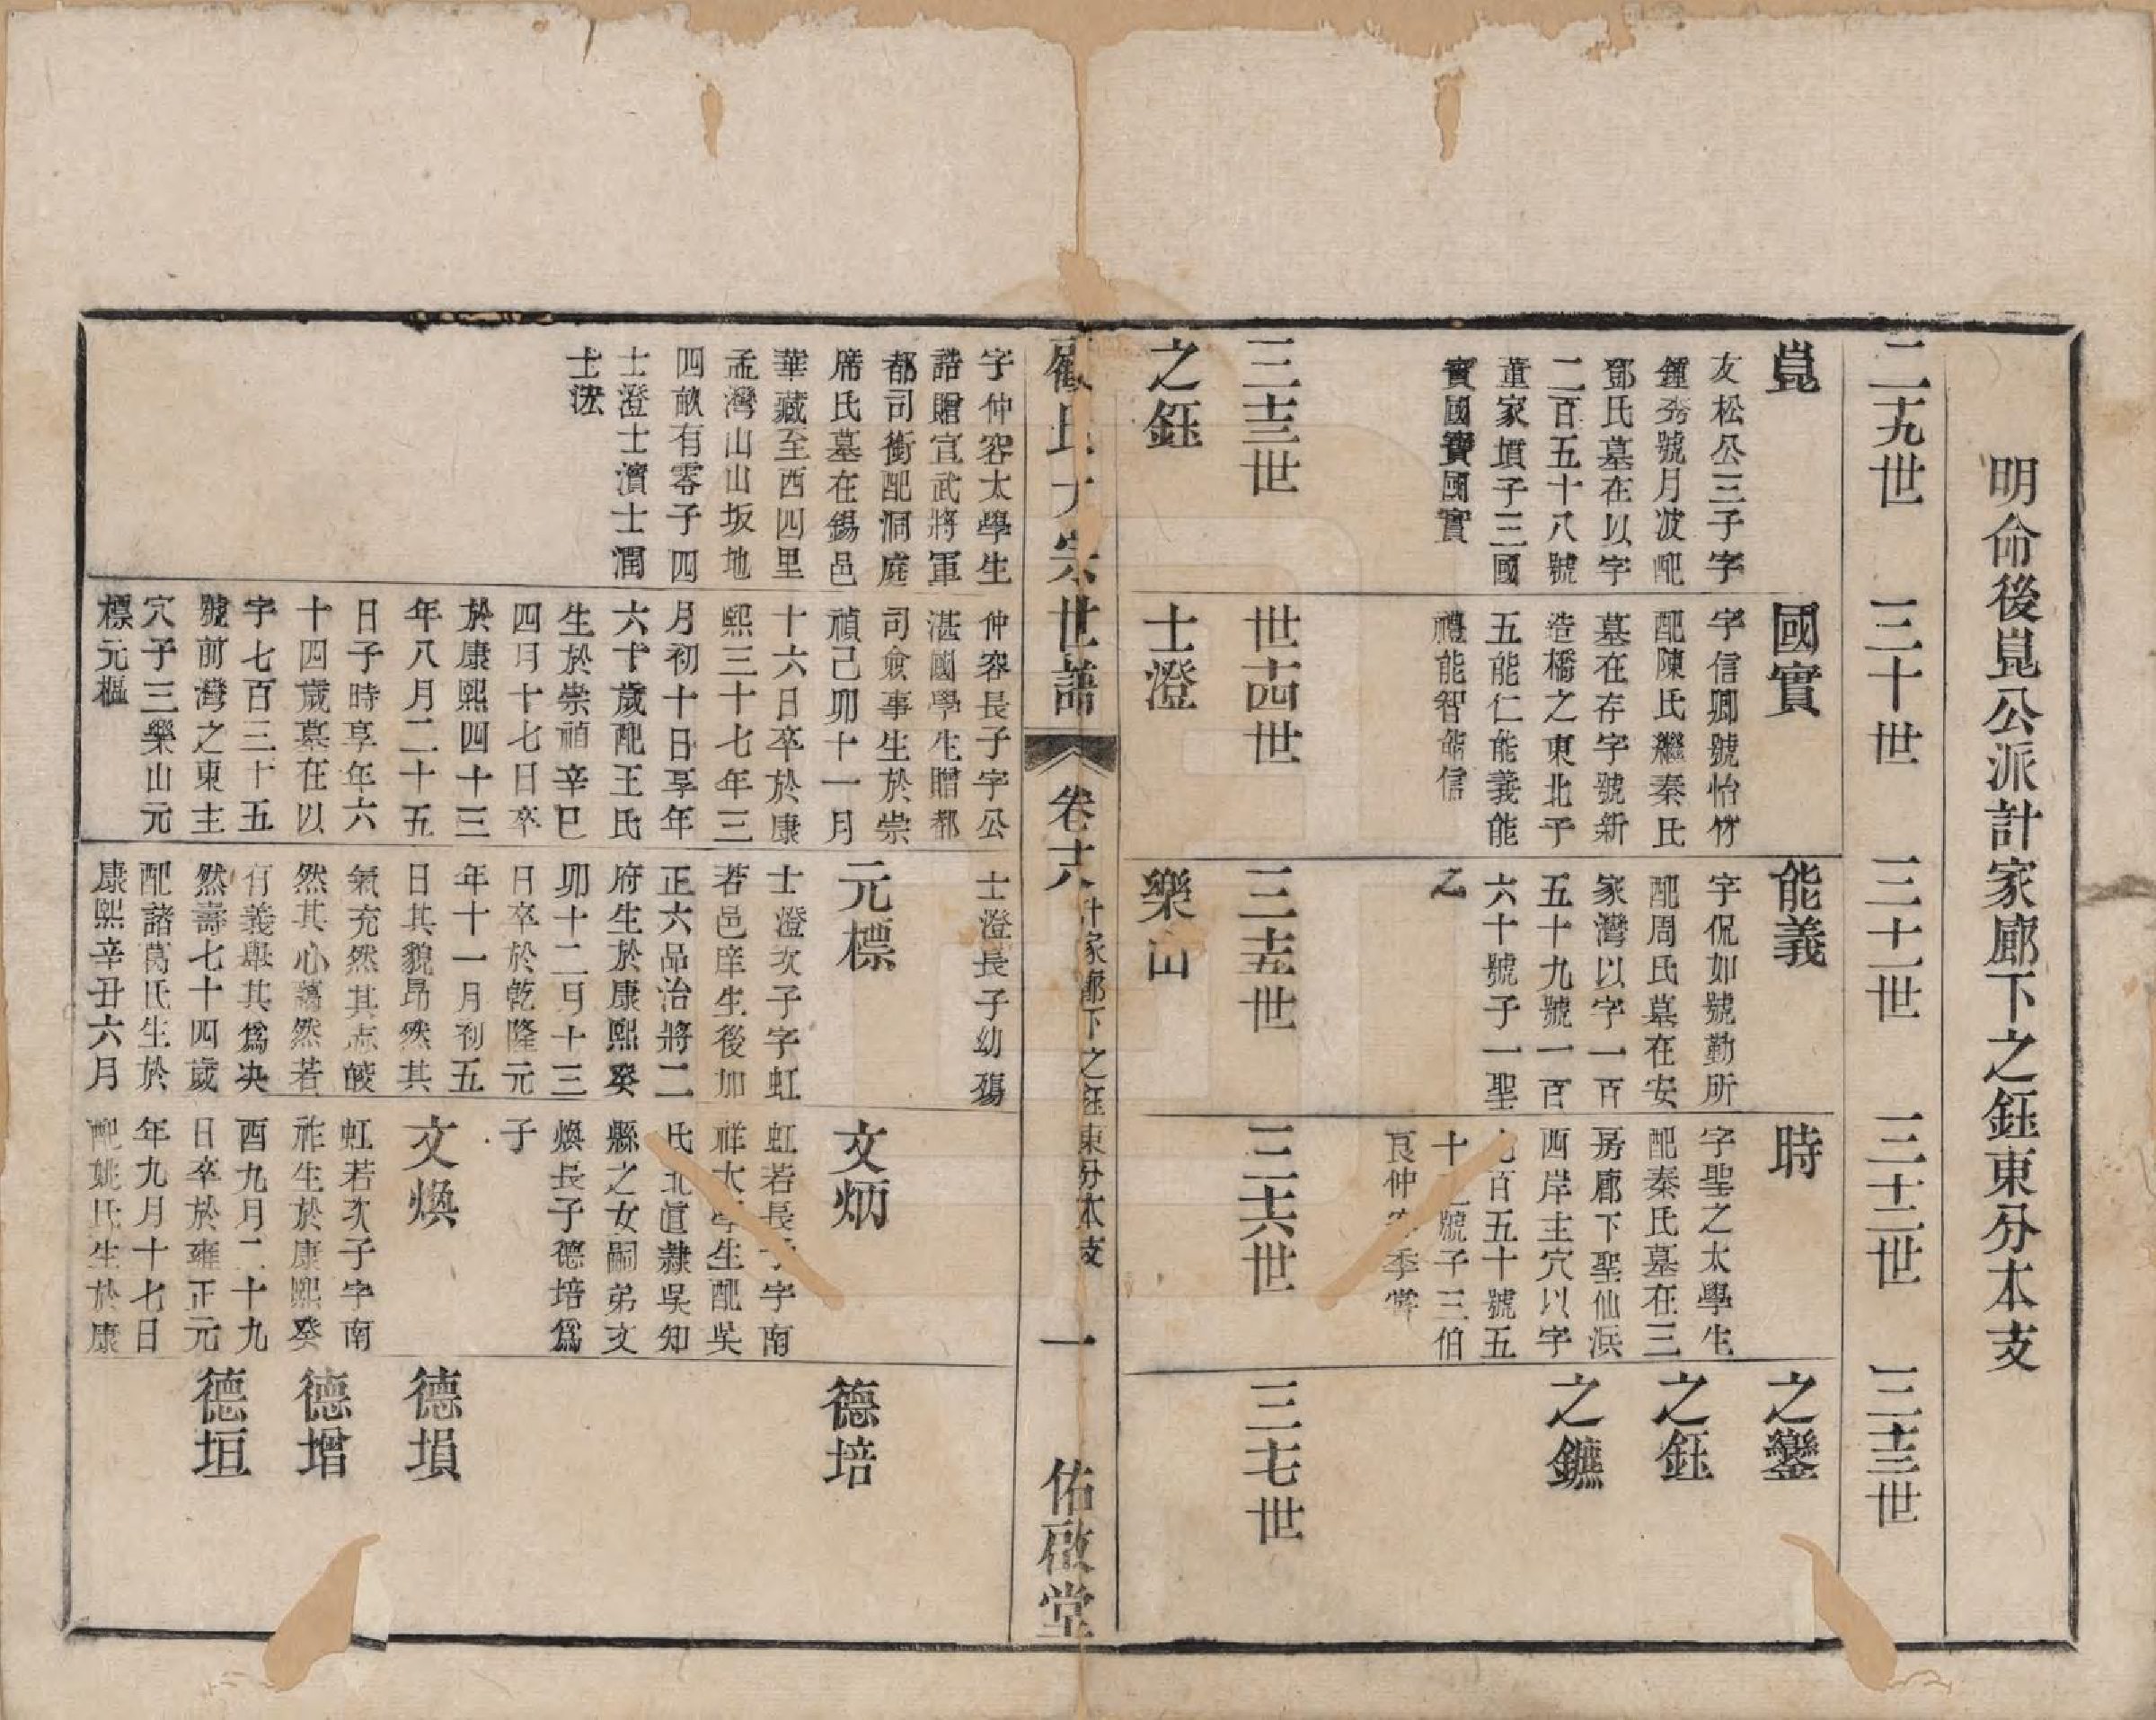 明命後崑公派計家廊下之鈺東分本支
二九世
三十世
三十一世
三十二世
三十三世
崑
友松公三子字
鍾秀號月波配
鄧氏墓在以字
二百五十八號
董家墳子三國
寶國寶國實
國實
字信卿號怡竹
配陳氏繼秦氏
墓在存字號新
造橋之東北子
五能仁能義能
禮能智能信
能義
字侃如號勤所
配周氏墓在安
家灣以字一百
五十九號一百
六十號子一聖
之
時
字聖之太學生
配秦氏墓在三
房廊下聖仙浜
西岸主穴以字
百五十號五
十 號子三伯
良仲 季常
之鑾
之鈺
之鑣
三十三世
世十四世
三十五世
三十六世
三七世
之鈺
士澄
樂山
顧氏大宗世譜
卷十六
計家廊下之鈺東分本支
一
佑啟堂
字仲容太學生
誥贈宣武將軍
都司銜配洞庭
席氏墓在錫邑
華藏至西四里
孟灣山山坂地
四畝有零子四
士澄士濱士潤
士浤
仲容長子字公
湛國學生贈都
司僉事生於崇
禎己卯十一月
十六日卒於康
熙三十七年三
月初十日享年
六十歲配王氏
生於崇禎辛巳
四月十七日卒
於康熙四十三
年八月二十五
日子時享年六
十四歲墓在以
字七百三十五
號前灣之東主
穴子三樂山元
標元樞
士澄長子幼殤
元標
士澄次子字虹
若邑庠生後加
正六品治將二
府生於康熙癸
卯十二月十三
日卒於乾隆元
年十一月初五
日其貌昂然其
氣充然其志皎
然其心藹然若
有義舉其為決
然壽七十四歲
配諸葛氏生於
康熙辛丑六月
文炳
虹若長子字南
祥太學生配吳
氏北直隸吳知
縣之女嗣弟文
煥長子德培為
子
文煥
虹若次子字南
祚生於康熙癸
酉九月二十九
日卒於雍正元
年九月十七日
配姚氏生於康
德培
德塤
德增
德垣